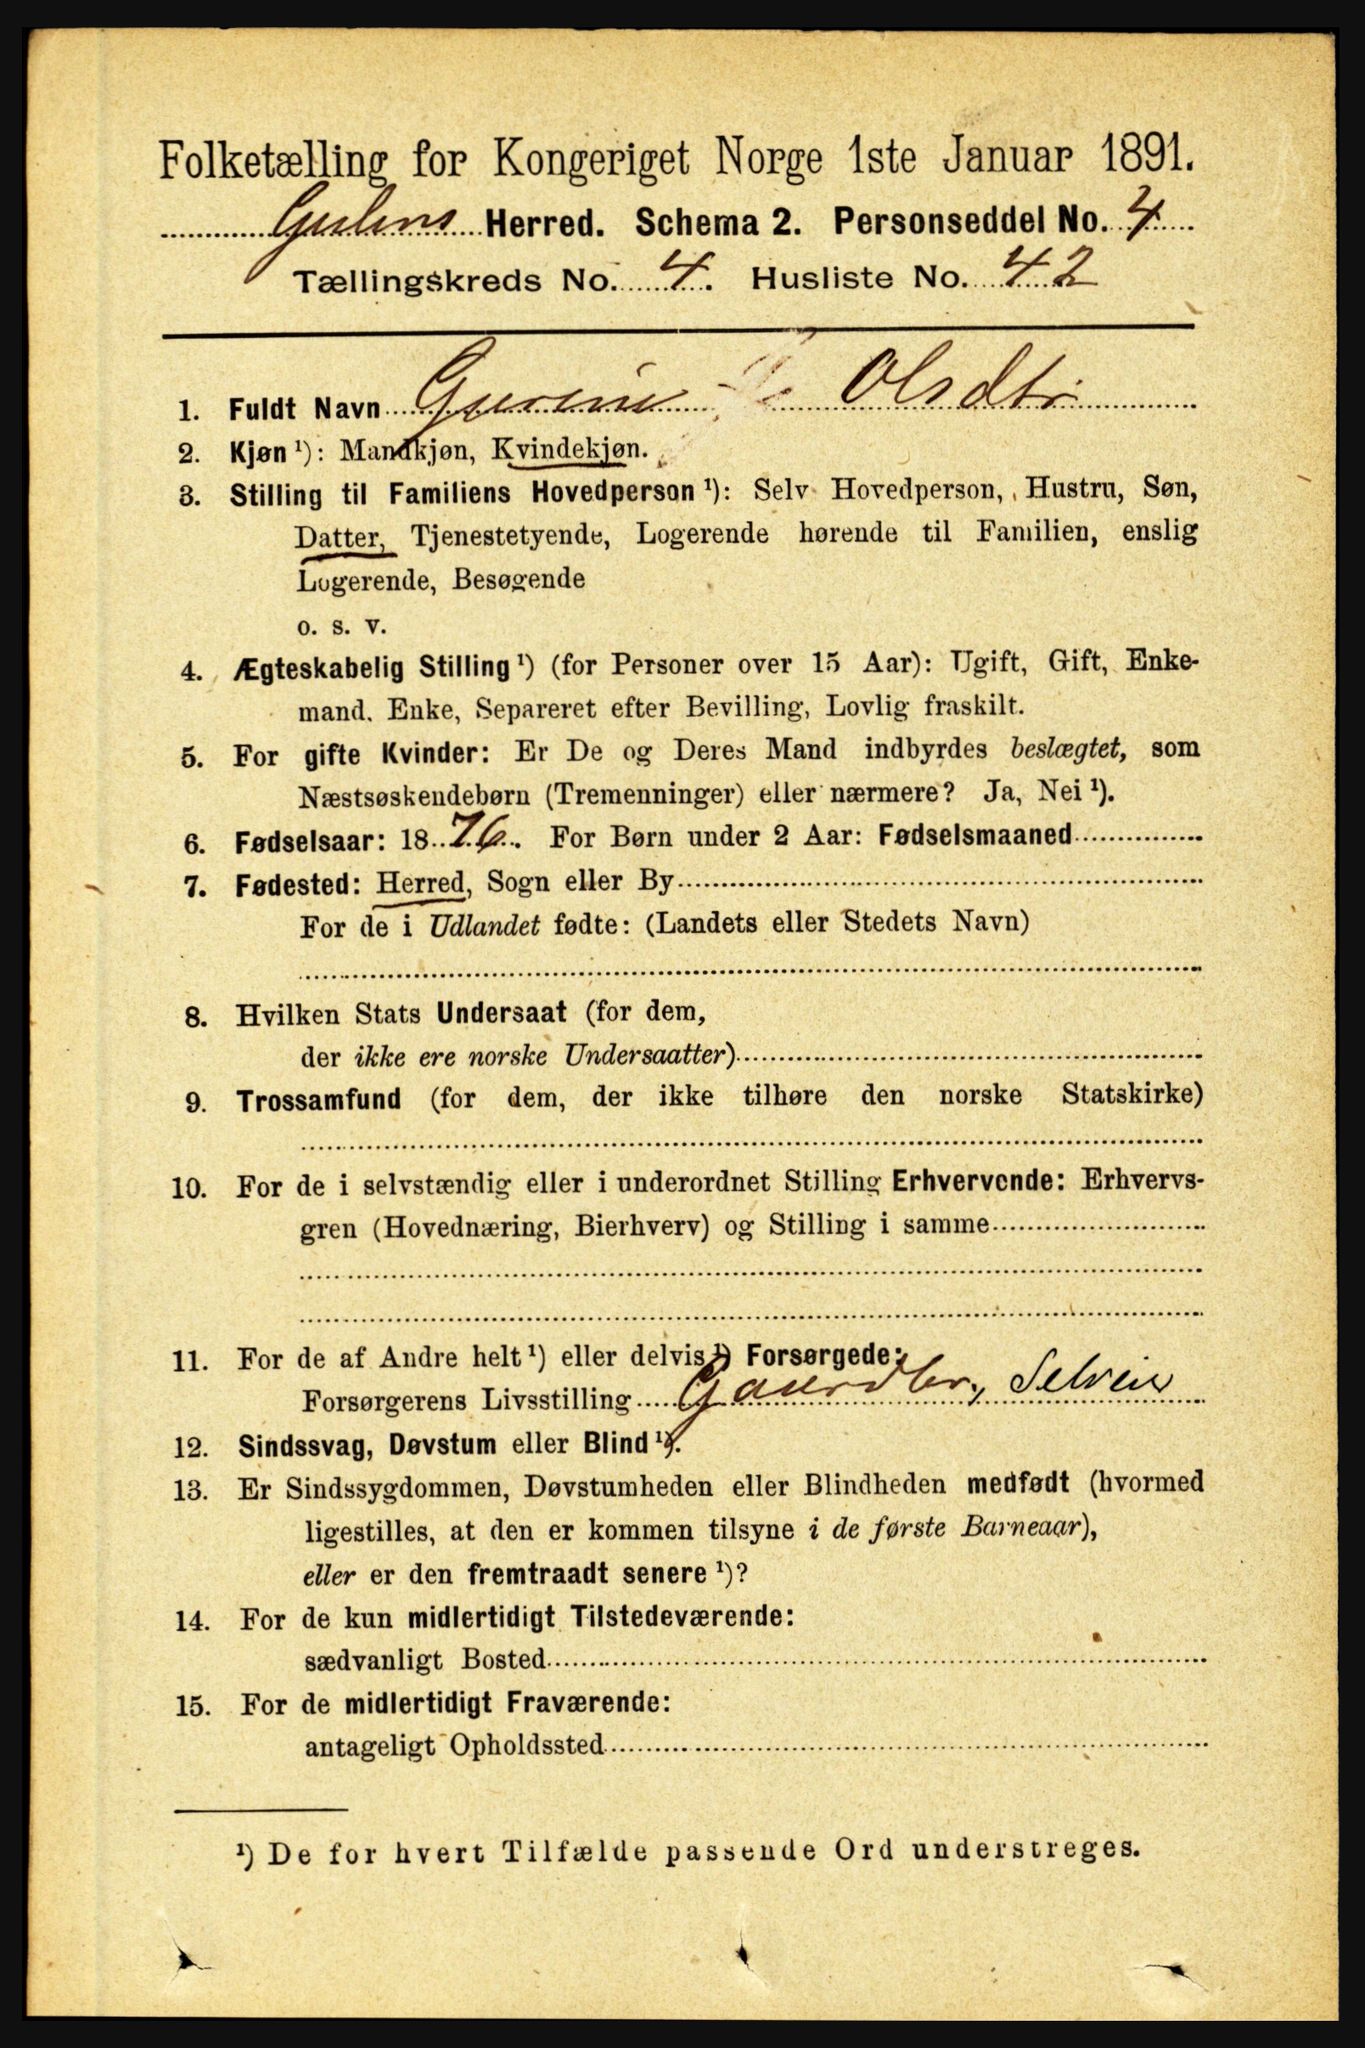 Folketælling for Kongeriget Norge 1ste Januar 1891.
Gulens Herred. Schema 2. Personseddel No. 4
Tællingskreds No. 4. Husliste No. 42
1. Fuldt Navn Gurine Olsdtr
2. Kjøn ¹): Mandkjøn, Kvindekjøn.
3. Stilling til Familiens Hovedperson ¹): Selv Hovedperson, Hustru, Søn,
Datter, Tjenestetyende, Logerende hørende til Familien, enslig
Logerende, Besøgende
o. s. v.
4. Ægteskabelig Stilling ¹) (for Personer over 15 Aar): Ugift, Gift, Enke-
mand. Enke, Separeret efter Bevilling, Lovlig fraskilt.
5. For gifte Kvinder: Er De og Deres Mand indbyrdes beslægtet, som
Næstsøskendebørn (Tremenninger) eller nærmere? Ja, Nei ¹).
6. Fødselsaar: 1876. For Børn under 2 Aar: Fødselsmaaned
7. Fødested: Herred, Sogn eller By
For de i Udlandet fødte: (Landets eller Stedets Navn)
8. Hvilken Stats Undersaat (for dem,
der ikke ere norske Undersaatter)
9. Trossamfund (for dem, der ikke tilhøre den norske Statskirke)
10. For de i selvstændig eller i underordnet Stilling Erhvervende: Erhvervs-
gren (Hovednæring, Bierhverv) og Stilling i samme
11. For de af Andre helt ¹) eller delvis ¹) Forsørgede:
Forsørgerens Livsstilling Gaardbr, Selveier
12. Sindssvag, Døvstum eller Blind ¹).
13. Er Sindssygdommen, Døvstumheden eller Blindheden medfødt (hvormed
ligestilles, at den er kommen tilsyne i de første Barneaar),
eller er den fremtraadt senere ¹)?
14. For de kun midlertidigt Tilstedeværende:
sædvanligt Bosted
15. For de midlertidigt Fraværende:
antageligt Opholdssted
¹) De for hvert Tilfælde passende Ord understreges.